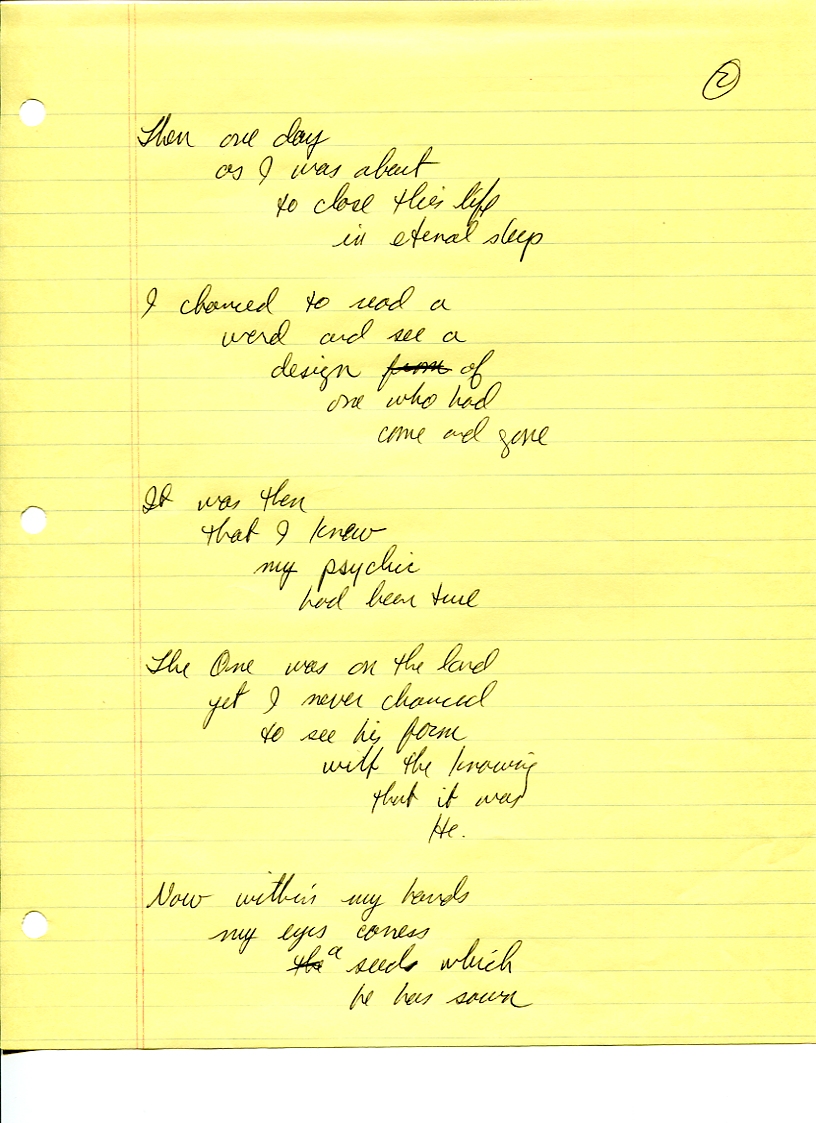 2
Then one day
as I was about
to close this life
in eternal sleep
I chanced to read a
word and see a
design from of
one who had
come and gone
It was then
that I knew
my psychic
had been true
The One was on the land
yet I never chanced
to see his form
with the knowing
that it was
He.
Now within my hands
my eyes caress
the a seeds which
he has sown